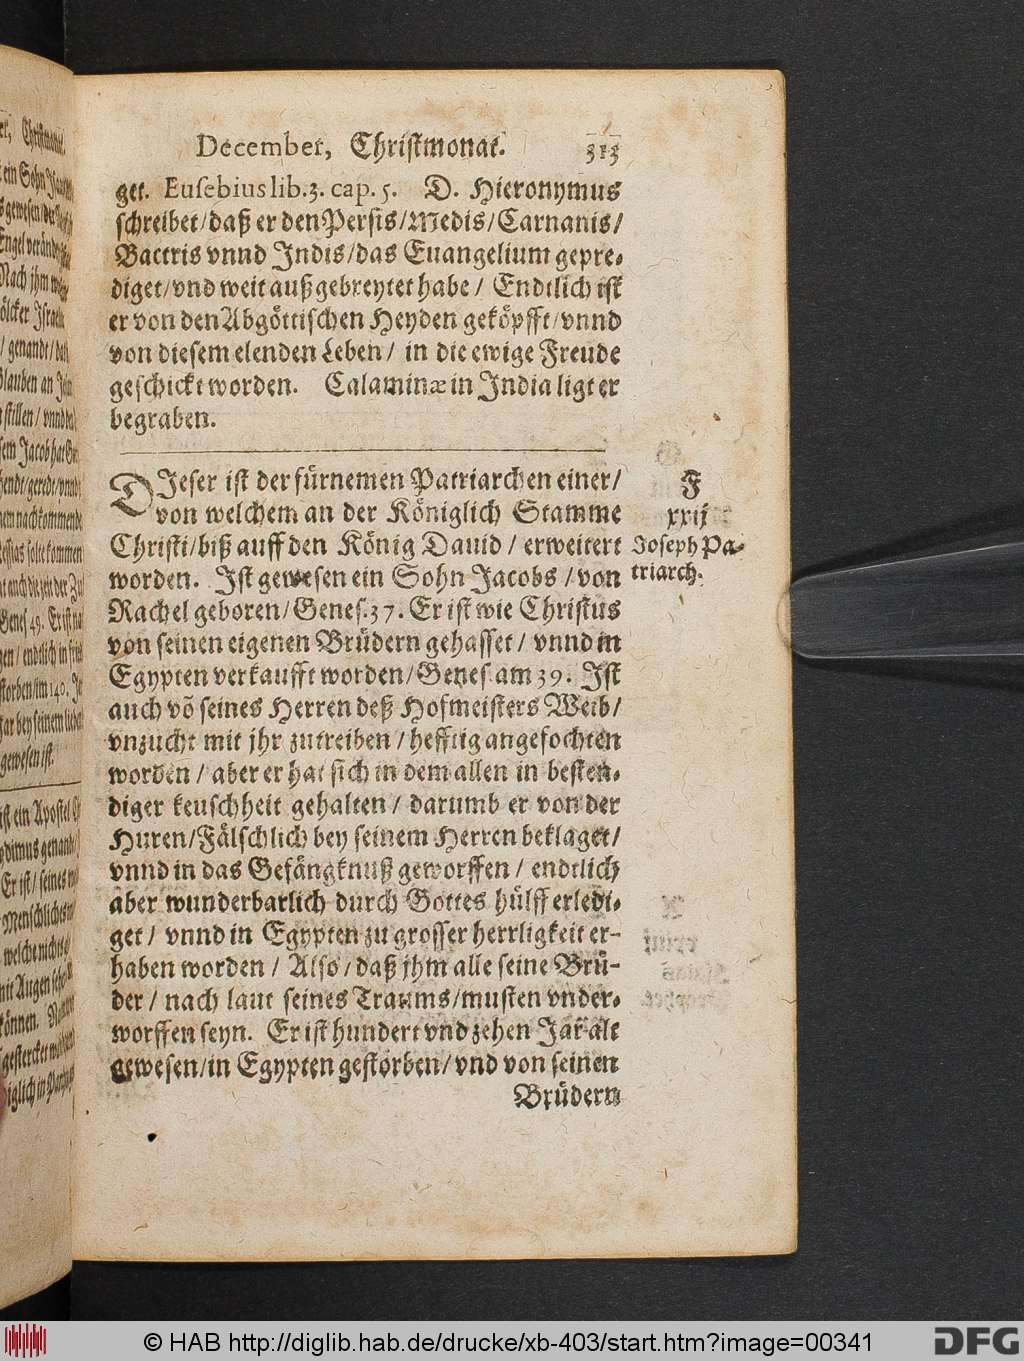 December, Christmonat. 313
get. Eusebius lib. 3. cap. 5. D. Hieronymus
schreibet / daß er den Persis / Medis / Carnanis /
Bactris vnnd Indis / das Euangelium gepre-
diget / vnd weit außgebreytet habe / Endtlich ist
er von den Abgöttischen Heyden geköpfft / vnnd
von diesem elenden Leben / in die ewige Freude
geschickt worden. Calaminæ in India ligt er
begraben.
DIeser ist der fürnemen Patriarchen einer /
von welchem an der Königlich Stamme
Christi / biß auff den König Dauid / erweitert
worden. Ist gewesen ein Sohn Jacobs / von
Rachel geboren / Genes. 37. Er ist wie Christus
von seinen eigenen Brüdern gehasset / vnnd in
Egypten verkaufft worden / Genes. am 39. Ist
auch võ seines Herren deß Hofmeisters Weib /
vnzucht mit jhr zutreiben / hefftig angefochten
worden / aber er hat sich in dem allen in besten-
diger keuschheit gehalten / darumb er von der
Huren / Fälschlich bey seinem Herren beklaget /
vnnd in das Gefängknuß geworffen / endtlich
aber wunderbarlich durch Gottes hülff erledi-
get / vnnd in Egypten zu grosser herrligkeit er-
haben worden / Also / daß jhm alle seine Brü-
der / nach laut seines Traums / musten vnder-
worffen seyn. Er ist hundert vnd zehen Jar alt
gewesen / in Egypten gestorben / vnd von seinen
Brüdern
F
xxij
Joseph Pa-
triarch.
ein Sohn
Nach jhm
genandt /
Glauben an
stillen / vnnd
nachkommende
Genes 49. Er ist
endtlich in
im 140.
bey seinem
gewesen ist.
ist ein Apostel
Er ist / seines
Menschliches
welche nicht
mit Augen
können.
© HAB http://diglib.hab.de/drucke/xb-403/start.htm?image=00341 DFG